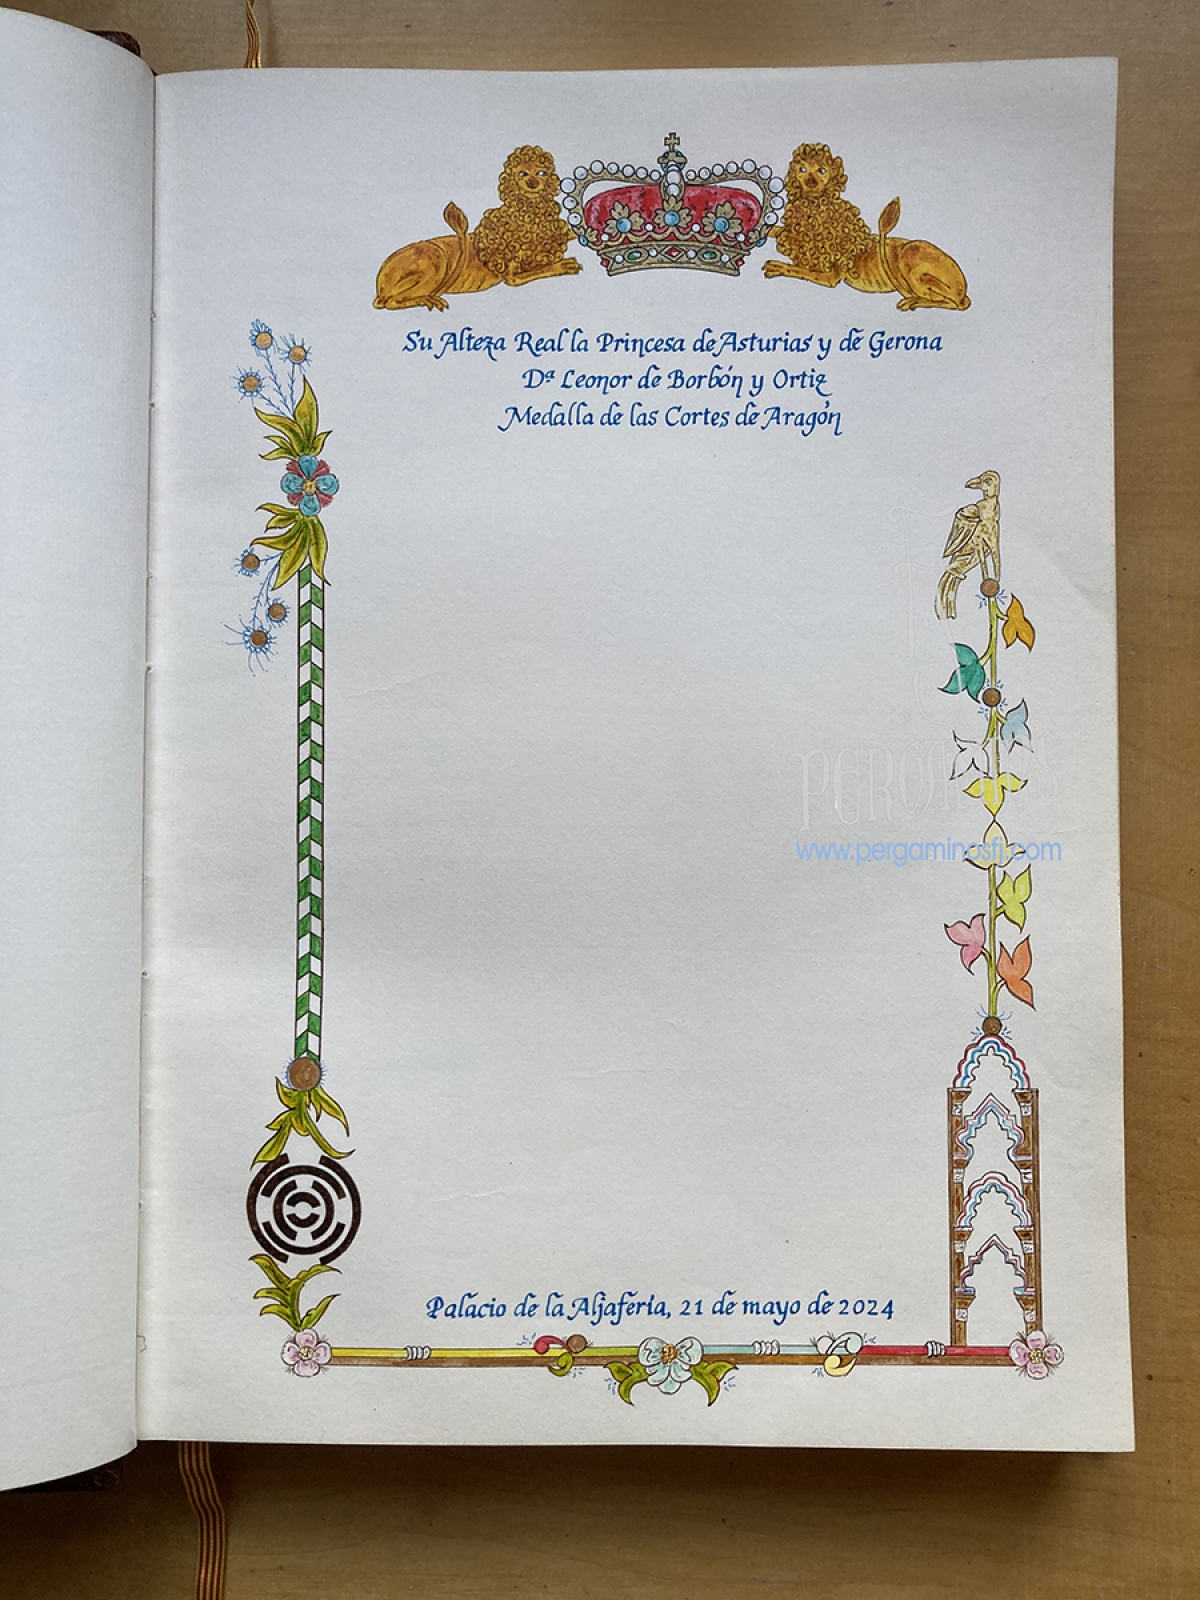 Su Alteza Real la Princesa de Asturias y de Gerona
Dª Leonor de Borbón y Ortiz
Medalla de las Cortes de Aragón
www.pergaminosfj.com
Palacio de la Aljafería, 21 de mayo de 2024